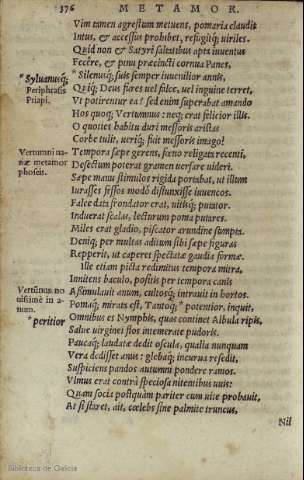 376 METAMOR.
Vim tamen agrestum metuens, pomaria claudit
Intus, & accessus prohibet, refugitq; viriles.
Quid non & Satyri saltatibus apta iuuentus
Fecêre, & pinu præcincti cornua Panes,
*Syluanusq; *Silenusq; suis semper iuuenilior annis,
Periphrasis Quiq; Deus fures vel falce, vel inguine terret,
Priapi. Vt potirentur ea? sed enim superabat amando
Hos quoq; Vertumnus: neq; erat felicior illis.
O quoties habitu duri messoris aristas
Corbe tulit, veriq; fuit messoris imago!
Vertumni uariæ metamorphoseis. Tempora sæpe gerens, fœno religata recenti,
Desectum poterat gramen uersare uideri.
Sæpe manu stimulos rigida portabat, ut illum
Iurasses fessos modò disiunxisse iuuencos.
Falce data frondator erat, uitisq; putator.
Induerat scalas, lecturum poma putares.
Miles erat gladio, piscator arundine sumpta.
Deniq; per multas aditum sibi sæpe figuras
Repperit, ut caperet spectatæ gaudia formæ.
Ille etiam picta redimitus tempora mitra,
Imitens baculo, positis per tempora canis
Vertunus nouissimè in anum. Aßimulauit anum, cultosq; intrauit in hortos.
Pomaq; mirats est, Tantoq; *potentior, inquit,
*peritior Omnibus es Nymphis, quas continet Albula ripis,
Salue virginei flos intemerate pudoris.
Paucaq; laudatæ dedit oscula, qualia nunquam
Vera dedisset anus: glebaq; incurua resedit,
Suspiciens pandos autumni pondere ramos.
Vlmus erat contrà speciosa nitentibus uuis:
Quam socia postquàm pariter cum uite probauit,
At si staret, ait, cœlebs sine palmite truncus,
Nil
Biblioteca de Galicia